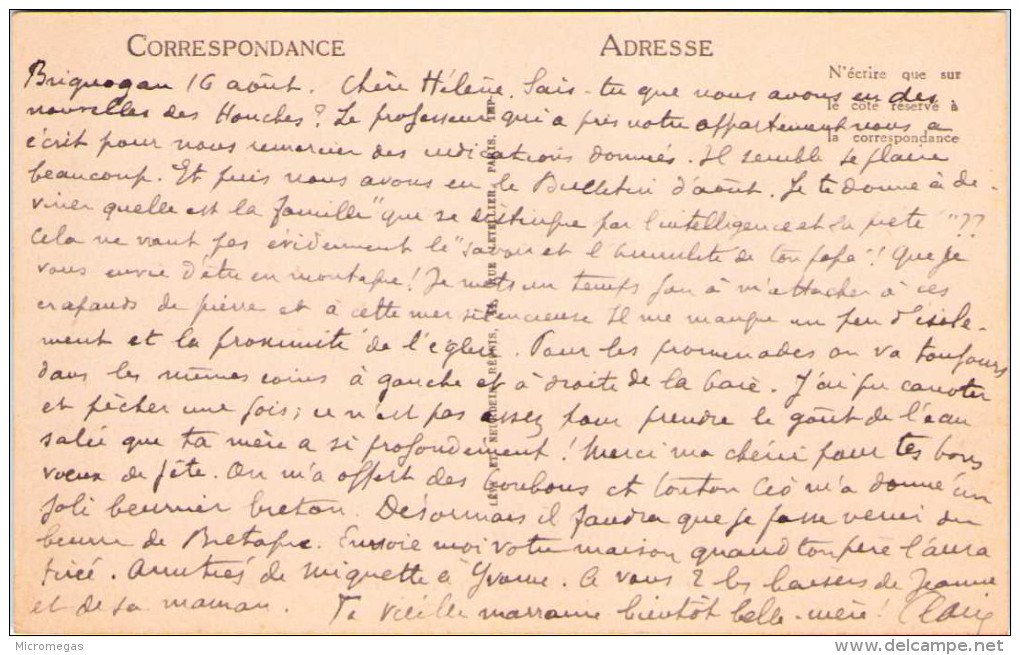 CORRESPONDANCE
ADRESSE
N'écrire que sur
le côté réservé à
la correspondance
Brignogan 16 août. Chère Hélène. Sais-tu que nous avons eu des
nouvelles des Houches? Le professeur qui a pris notre appartement nous a
écrit pour nous remercier des indications donnés. Il semble se plaire
beaucoup. Et puis nous avons eu le Bulletin d'août. Je te donne à de-
viner quelle est la famille "que se distingue par l'intelligence et la piété"??
Cela ne vaut pas évidemment le "savoir et l'humilité de ton papa"! Que je
vous envie d'être en montagne! Je mets un temps fou à m'attacher à ces
crapauds de pierre et à cette mer silencieuse Il me manque un peu d'isole-
ment et la proximité de l'église. Pour les promenades on va toujours
dans les mêmes coins à gauche et à droite de la baie. J'ai pu canoter
et pêcher une fois; ce n'est pas assez pour prendre le goût de l'eau
salée que ta mère a si profondément! Merci ma chérie pour tes bons
voeux de fête. On m'a offert des bonbons et tonton Léo m'a donné un
joli beurrier breton. Désormais il faudra que je fasse venir du
beurre de Bretagne. Envoie moi votre maison quand ton père l'aura
tirée. Amitiés de Miguette à Yvonne. A vous 2 les baisers de Jeanne
et de sa maman. Ta vieille marraine bientôt belle-mère!
LÉVY ET NEURDEIN RÉUNIS, 44, RUE LETELLIER, PARIS. IMP.
Micromegas
delcampe.net